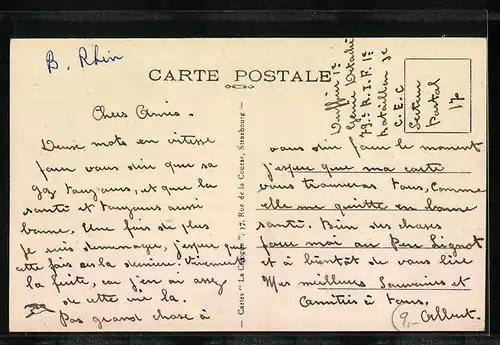 B. Rhin
CARTE POSTALE
Chers Amis.
Deux mots en vitesse
pour vous dire que sa
gaz toujours, et que la
santé et toujours aussi
bonne. Une fois de plus
je suis demenager, j'espere que
cette fois ces la derniere Vivement
la fuite, car j'en ai assez
de cette vie la.
Pas grand chose à
Cartes "La Cigogne", 17, Rue de la Course, Strasbourg
1e
Génie Détaché
79e R. I. F. 1e
Bataillon 3e
C. E. C
Secteur
Postal
17
vous dire pour le moment
j'espere que ma carte
vous trouveras tous, Comme
elle me quitte en bonne
santé. Bien des choses
pour moi au Pere
et à bientôt de vous lire
Mes meilleurs Souvenirs et
Amitiés à tous,
Albert.
(9,-